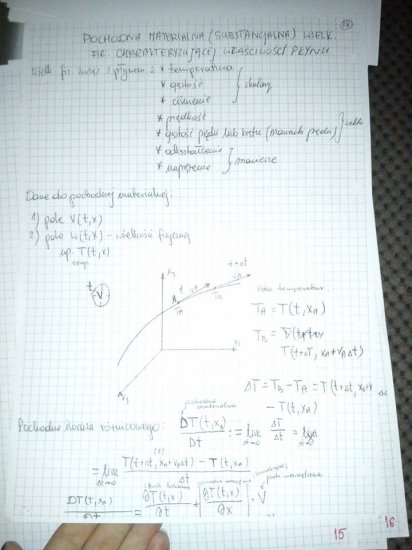 POCHODNA MATERIALNA (SUBSTANCJALNA) WIELK.
FIZ. CHARAKTERYZUJĄCEJ WŁAŚCIWOŚCI PŁYNU
Wielk. fiz. związ. z płynem: * temperatura
* gęstość
* ciśnienie
} skalary
* prędkość
* gęstość pędu lub krętu (momentu pędu)
* odkształcenie
* naprężenie
} macierze
Dane do pochodnej materialnej:
1) pole V(t,x)
2) pole W(t,x) - wielkości fizycznej
np. T(t,x)
t
t+Δt
T_A
T_B
x_1
Pole temperatur
T_A = T(t, x_A)
T_B =
T(t+ΔT, x_A+v_AΔt)
ΔT = T_B - T_A = T(t+Δt, x_A+v
- T(t, x_A)
Pochodna ilorazu różnicowego:
pochodna materialna
DT(t,x_A)/Dt := lim Δt→0 ΔT/Δt = lim Δt→0
= lim Δt→0 T(t+Δt, x_A+v_AΔt) - T(t, x_A) / Δt
DT(t,x_A) = ∂T(t,x)/∂t + ∂T(t,x)/∂x · V
15
16